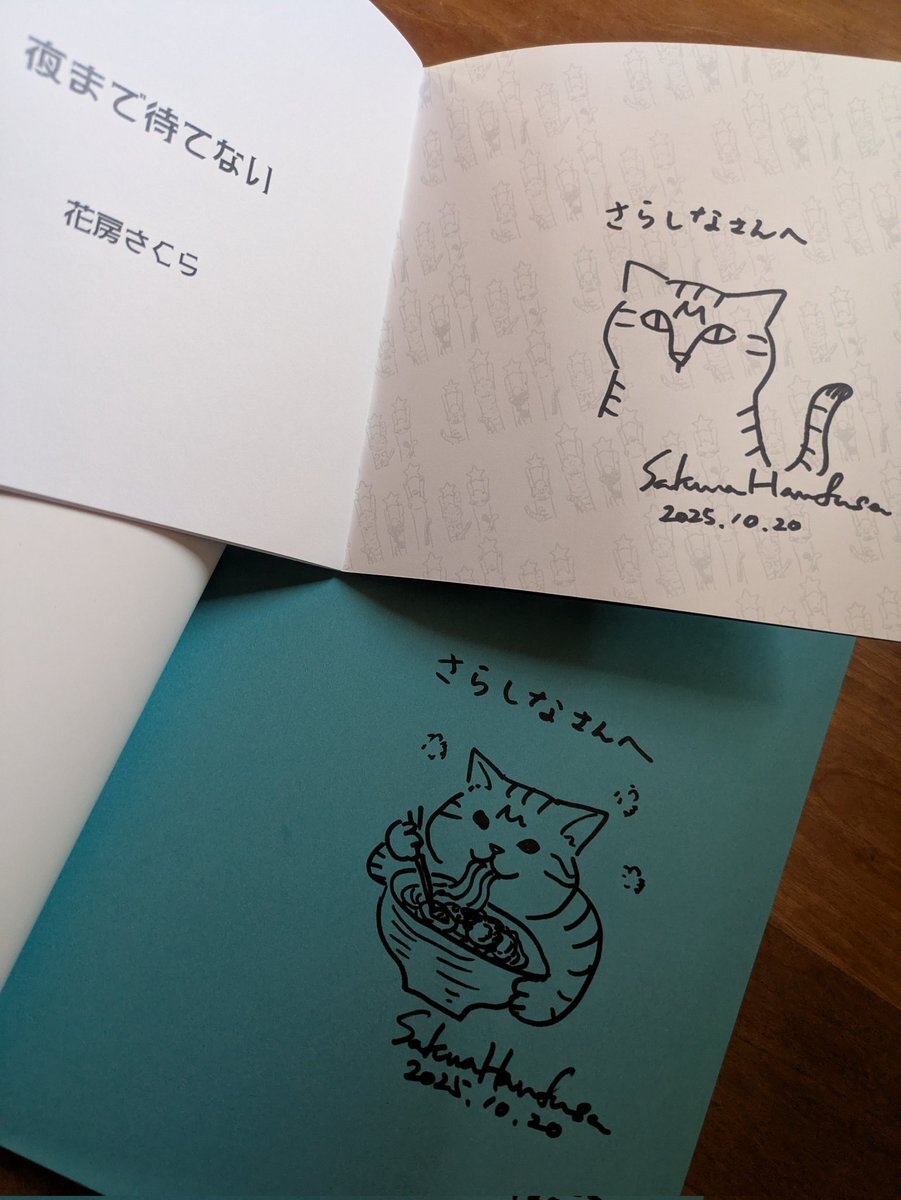 夜まで待てない
花房さくら
さらしなさんへ
Sakura Hanafusa
2025.10.20
さらしなさんへ
Sakura Hanafusa
2025.10.20